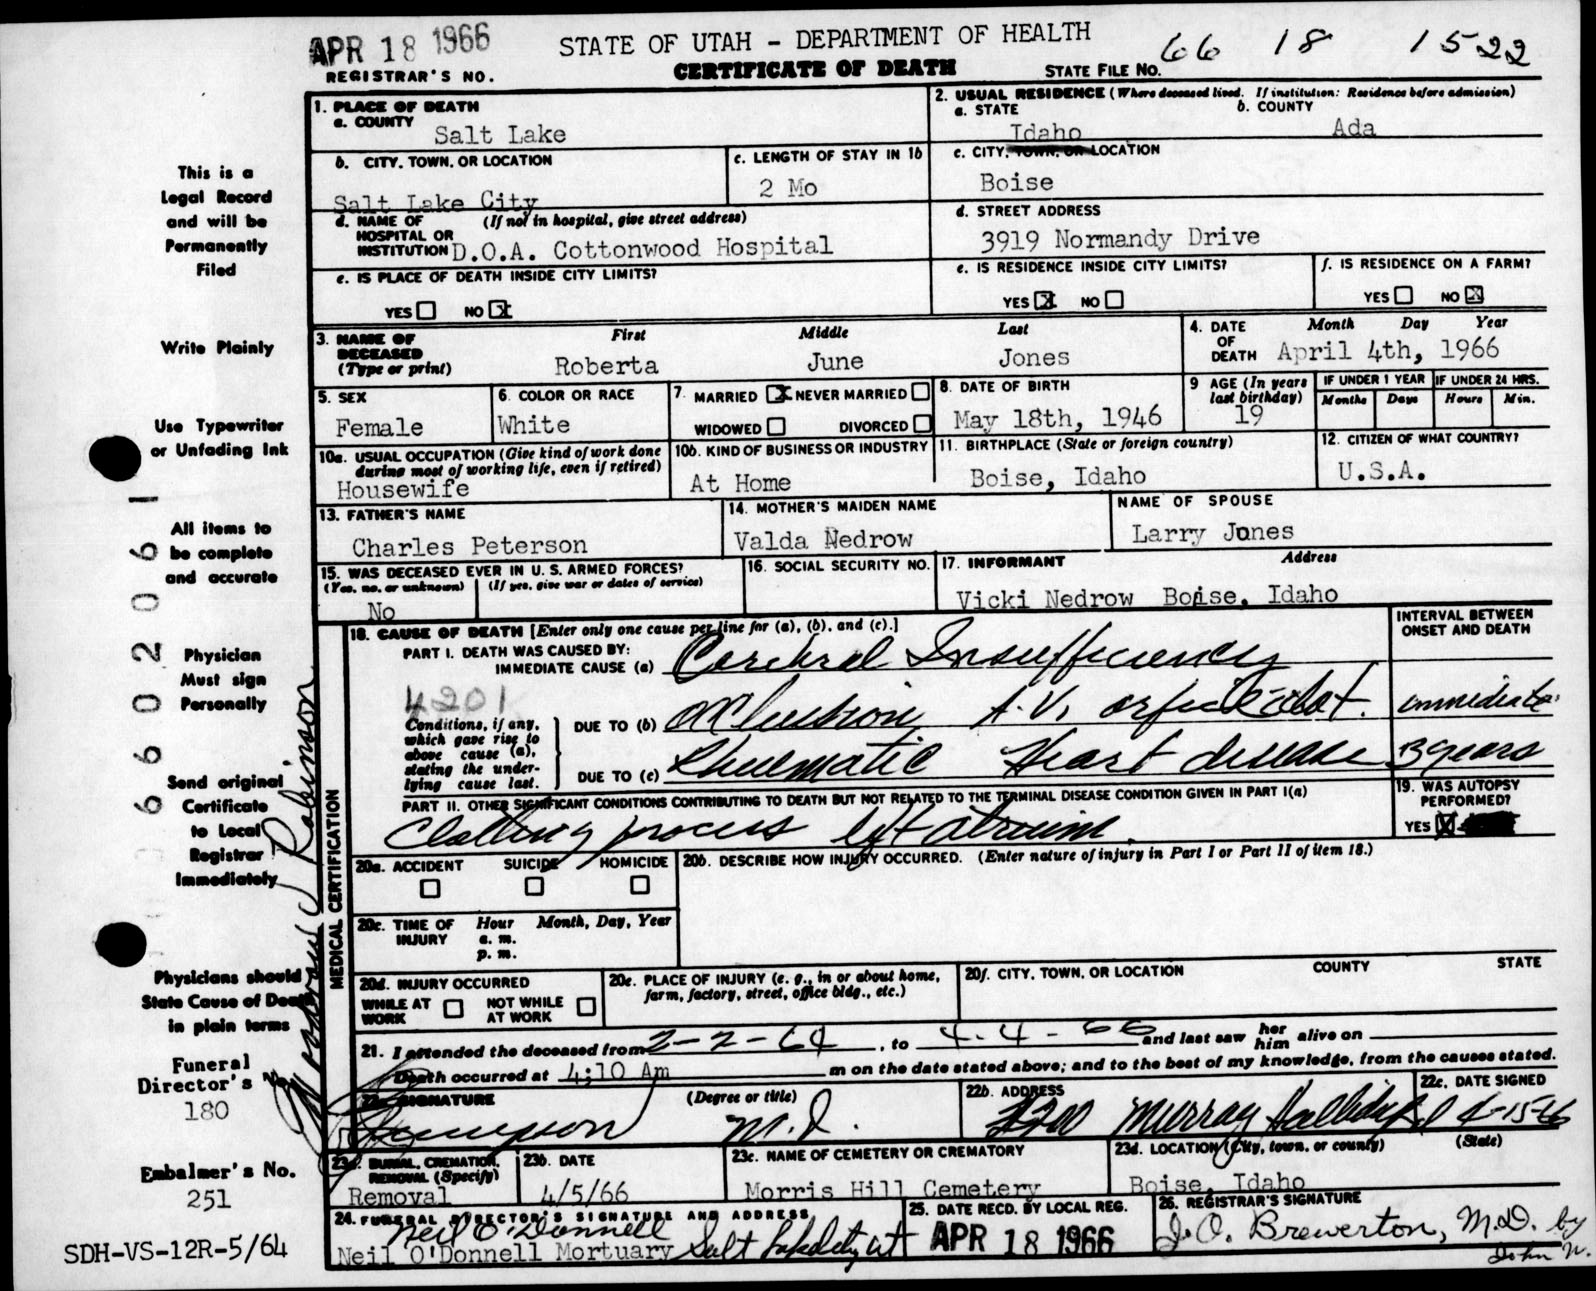 APR 18 1966
STATE OF UTAH - DEPARTMENT OF HEALTH
66 18 1522
REGISTRAR'S NO.
CERTIFICATE OF DEATH
STATE FILE NO.
1. PLACE OF DEATH
a. COUNTY
Salt Lake
2. USUAL RESIDENCE (Where deceased lived. If institution: Residence before admission)
a. STATE
Idaho
b. COUNTY
Ada
b. CITY, TOWN, OR LOCATION
Salt Lake City
c. LENGTH OF STAY IN 1b
2 Mo
c. CITY, TOWN, OR LOCATION
Boise
d. NAME OF HOSPITAL OR INSTITUTION (If not in hospital, give street address)
D.O.A. Cottonwood Hospital
d. STREET ADDRESS
3919 Normandy Drive
e. IS PLACE OF DEATH INSIDE CITY LIMITS?
YES NO X
e. IS RESIDENCE INSIDE CITY LIMITS?
YES X NO
f. IS RESIDENCE ON A FARM?
YES NO X
3. NAME OF DECEASED (Type or print)
First Middle Last
Roberta June Jones
4. DATE OF DEATH
Month Day Year
April 4th, 1966
5. SEX
Female
6. COLOR OR RACE
White
7. MARRIED X NEVER MARRIED
WIDOWED DIVORCED
8. DATE OF BIRTH
May 18th, 1946
9 AGE (In years last birthday)
19
IF UNDER 1 YEAR
Months Days
IF UNDER 24 HRS.
Hours Min.
10a. USUAL OCCUPATION (Give kind of work done during most of working life, even if retired)
Housewife
10b. KIND OF BUSINESS OR INDUSTRY
At Home
11. BIRTHPLACE (State or foreign country)
Boise, Idaho
12. CITIZEN OF WHAT COUNTRY?
U.S.A.
13. FATHER'S NAME
Charles Peterson
14. MOTHER'S MAIDEN NAME
Valda Nedrow
NAME OF SPOUSE
Larry Jones
15. WAS DECEASED EVER IN U. S. ARMED FORCES?
(Yes, no, or unknown) (If yes, give war or dates of service)
No
16. SOCIAL SECURITY NO.
17. INFORMANT Address
Vicki Nedrow Boise, Idaho
MEDICAL CERTIFICATION
18. CAUSE OF DEATH [Enter only one cause per line for (a), (b), and (c).]
INTERVAL BETWEEN ONSET AND DEATH
PART I. DEATH WAS CAUSED BY:
IMMEDIATE CAUSE (a) Cerebral Insufficiency
4201
Conditions, if any, which gave rise to above cause (a), stating the underlying cause last.
DUE TO (b) occlusion A.V. immediate
DUE TO (c) Rheumatic Heart disease 3 years
PART II. OTHER SIGNIFICANT CONDITIONS CONTRIBUTING TO DEATH BUT NOT RELATED TO THE TERMINAL DISEASE CONDITION GIVEN IN PART I(a)
Clotting process left atrium.
19. WAS AUTOPSY PERFORMED?
YES X
20a. ACCIDENT SUICIDE HOMICIDE
20b. DESCRIBE HOW INJURY OCCURRED. (Enter nature of injury in Part I or Part II of item 18.)
20c. TIME OF INJURY
Hour Month, Day, Year
a. m.
p. m.
20d. INJURY OCCURRED
WHILE AT WORK NOT WHILE AT WORK
20e. PLACE OF INJURY (e. g., in or about home, farm, factory, street, office bldg., etc.)
20f. CITY, TOWN, OR LOCATION COUNTY STATE
21. I attended the deceased from 2-2-64, to 4-4-66 and last saw her him alive on
Death occurred at 4:10 Am m on the date stated above; and to the best of my knowledge, from the causes stated.
22a. SIGNATURE (Degree or title)
M.D.
22b. ADDRESS
Murray Holliday Rd
22c. DATE SIGNED
4-15-66
23a. BURIAL, CREMATION, REMOVAL (Specify)
Removal
23b. DATE
4/5/66
23c. NAME OF CEMETERY OR CREMATORY
Morris Hill Cemetery
23d. LOCATION (City, town, or county) (State)
Boise, Idaho
24. FUNERAL DIRECTOR'S SIGNATURE AND ADDRESS
Neil O'Donnell
Neil O'Donnell Mortuary Salt Lake City Ut
25. DATE RECD. BY LOCAL REG.
APR 18 1966
26. REGISTRAR'S SIGNATURE
J.O. Brewerton, M.D. by
John W.
This is a
Legal Record
and will be
Permanently
Filed
Write Plainly
Use Typewriter
or Unfading Ink
All items to
be complete
and accurate
Physician
Must sign
Personally
Send original
Certificate
to Local
Registrar
Immediately
Physicians should
State Cause of Death
in plain terms
Funeral
Director's No.
180
Embalmer's No.
251
SDH-VS-12R-5/64
Robinson